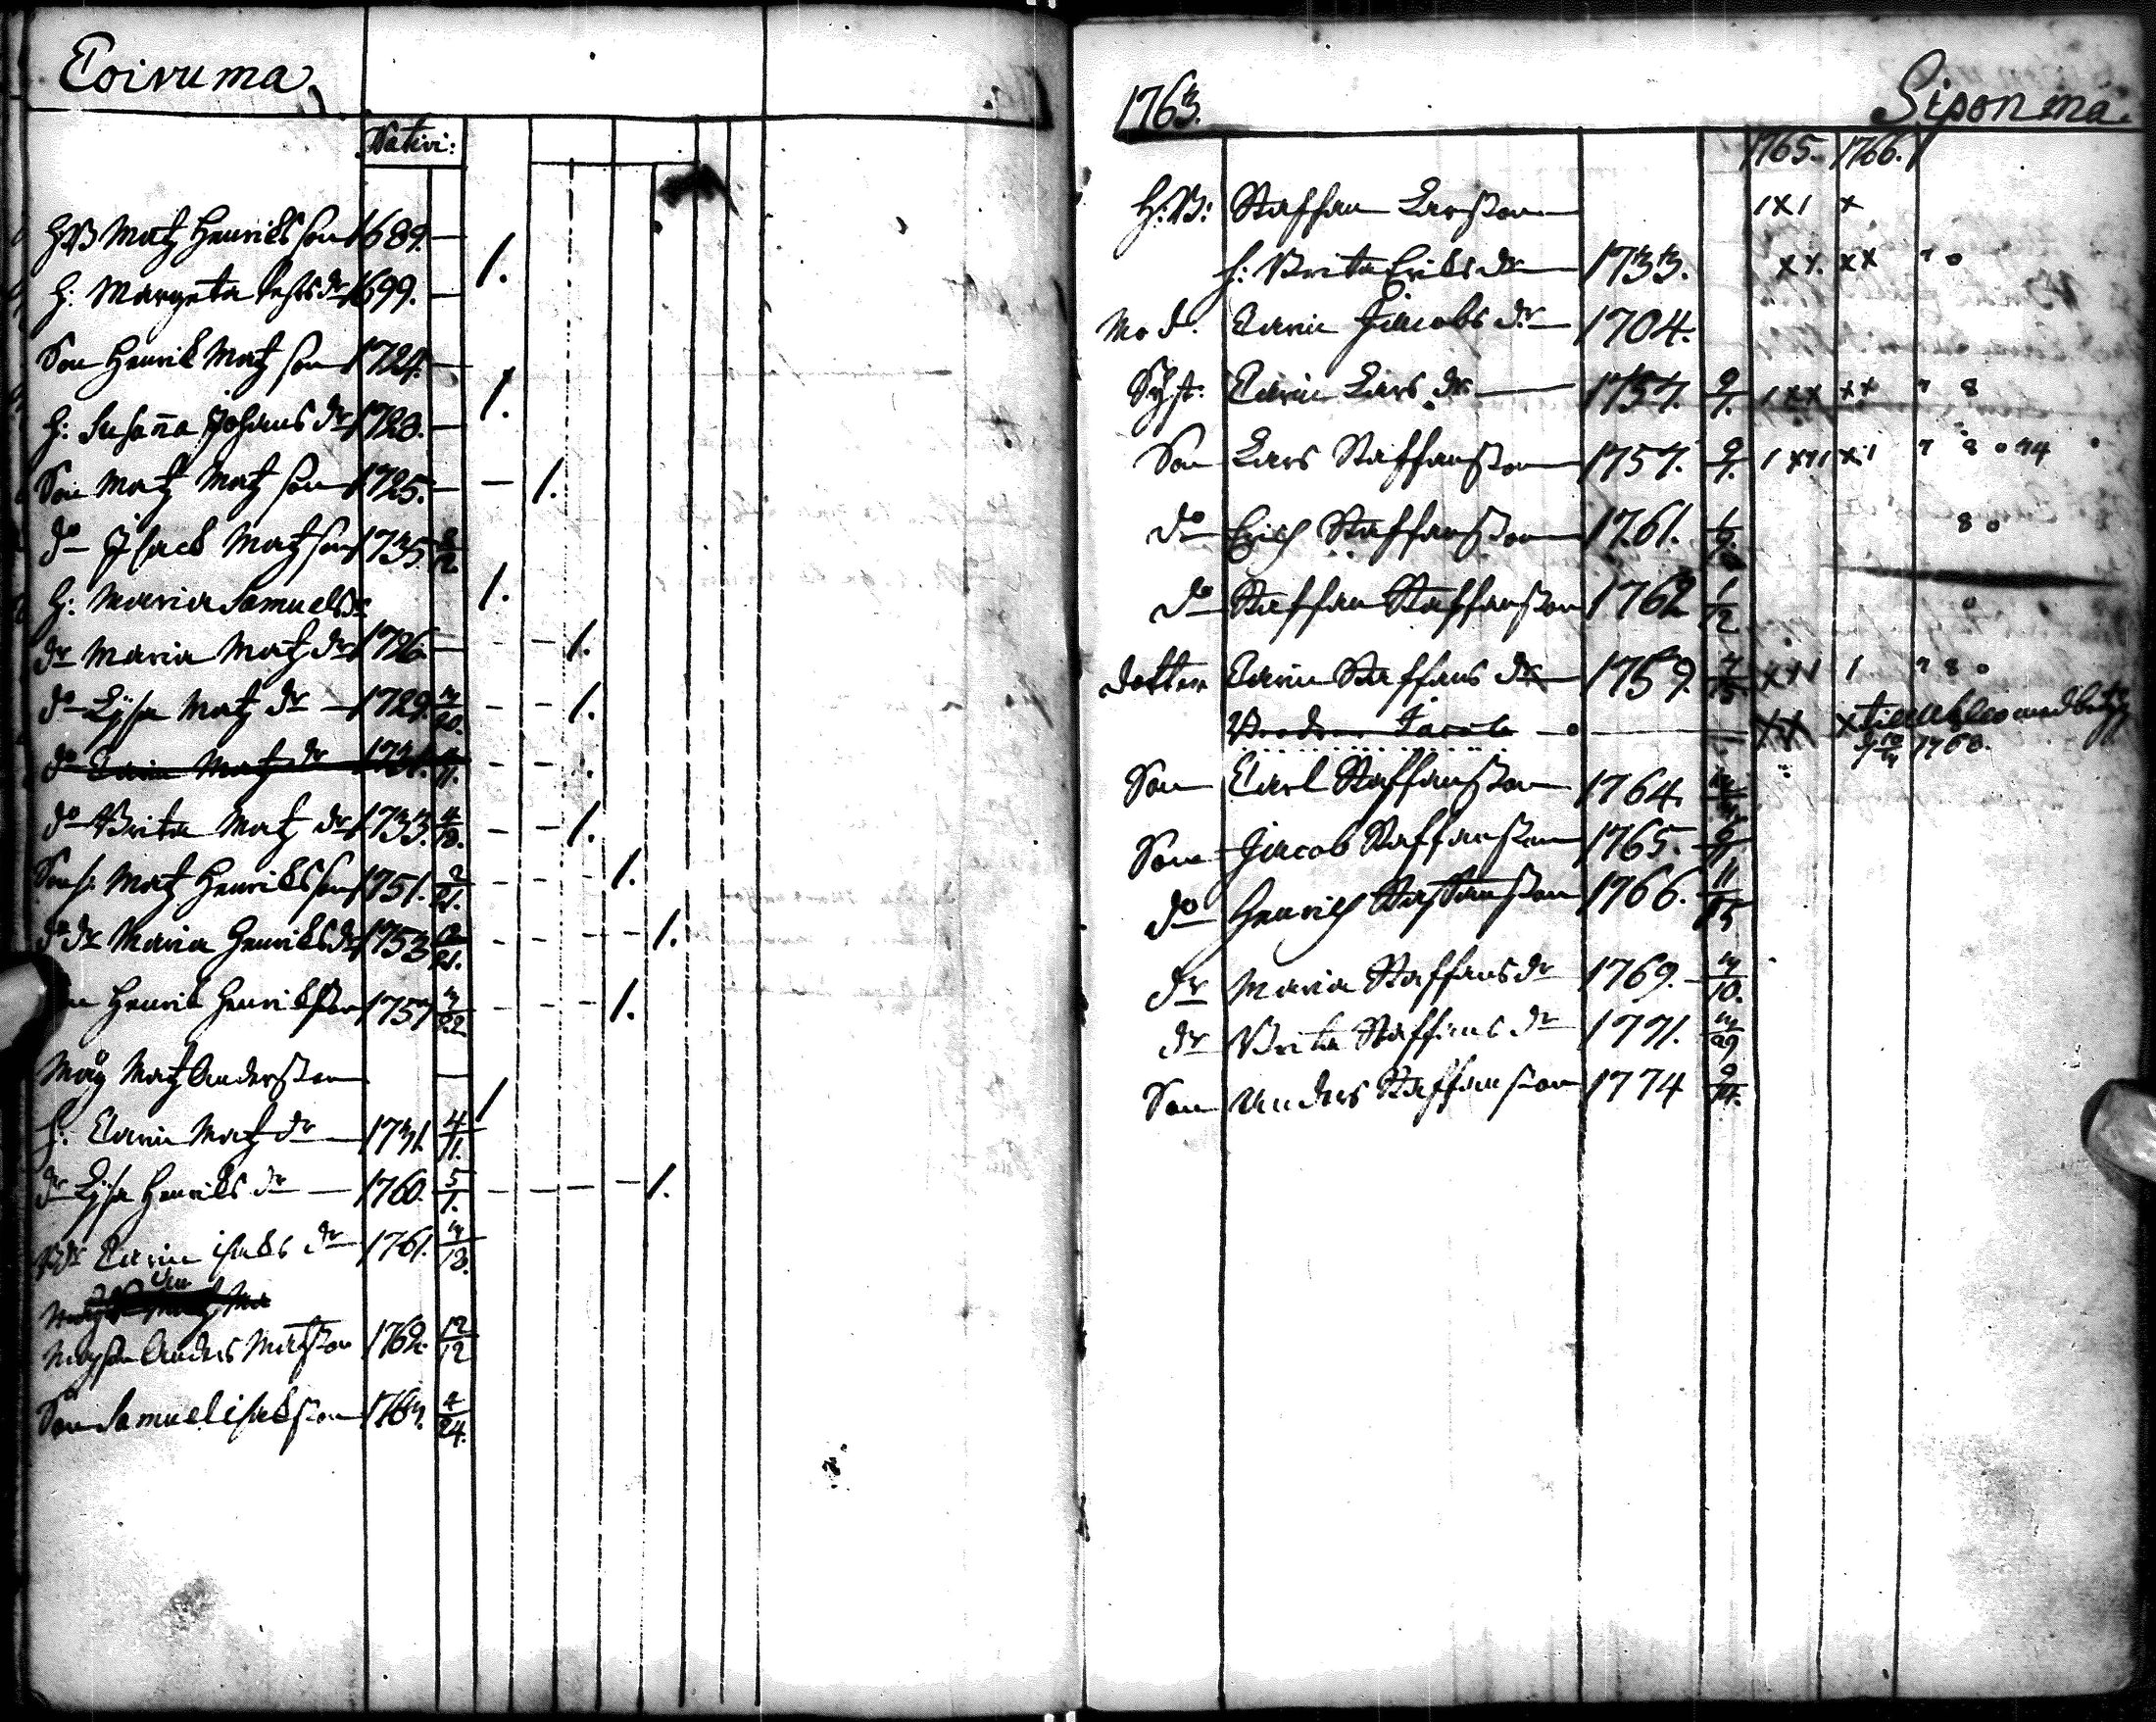 Toivuma
Nativi:
HB Matz Henrics son 1689. — 1.
H: Margeta drs 1699. —
Son Henrik Matz son 1724. —
H: Susanna Johans dr 1728. — 1.
Son Matz Matz son 1725. — — 1.
do Isack Matz son 1735.
H: Maria Samuels dr 1.
dr Maria Matz dr 1726 — — — 1.
do Lisa Matz dr — 1729. — — 1.
do Carin Matz dr 1731. 4/11. — —
do Brita Matz dr 1733. 4/18. — — 1.
Sons: Matz Henrics son 1751. 2/21. — — — 1.
do dr Maria Henrics dr 1753 — — — — 1.
Henrik Henricsson 1757 3/22 — — — 1.
Måg Matz Andersson — 1
H: Carin Matz dr — 1731. 4/11.
dr Lisa Henrics dr — 1760. 5/1. — — — — 1.
dr Carin Isacs dr 1761. 3/18.
Anders Matsson 1762. 12/12
Son Samuel Isacsson 4/24.
1763. Siponma.
1765. 1766.
H:B: Staffan Larsson 1x1 x
h: Brita Erics dr 1733. xx. xx
Mod. Carin Jacobs dr 1704.
Syst: Carin Lars dr — 1757. 9/1. 1xx xx
Son Lars Staffansson 1757. 9/1.
do Erich Staffansson 1761. 8 0
do Staffan Staffansson 1762 1/12 0
dotter Carin Staffans dr 1759. 7/15 1
Brodren Jacob — xx x till med betyg
1768.
Son Carl Staffansson 1764.
Son Jacob Staffansson 1765. 6/11
do Henrich Staffansson 1766. 11/15
dr Maria Staffans dr 1769. 3/10.
dr Brita Staffans dr 1771. 3/29
Son Anders Staffansson 1774